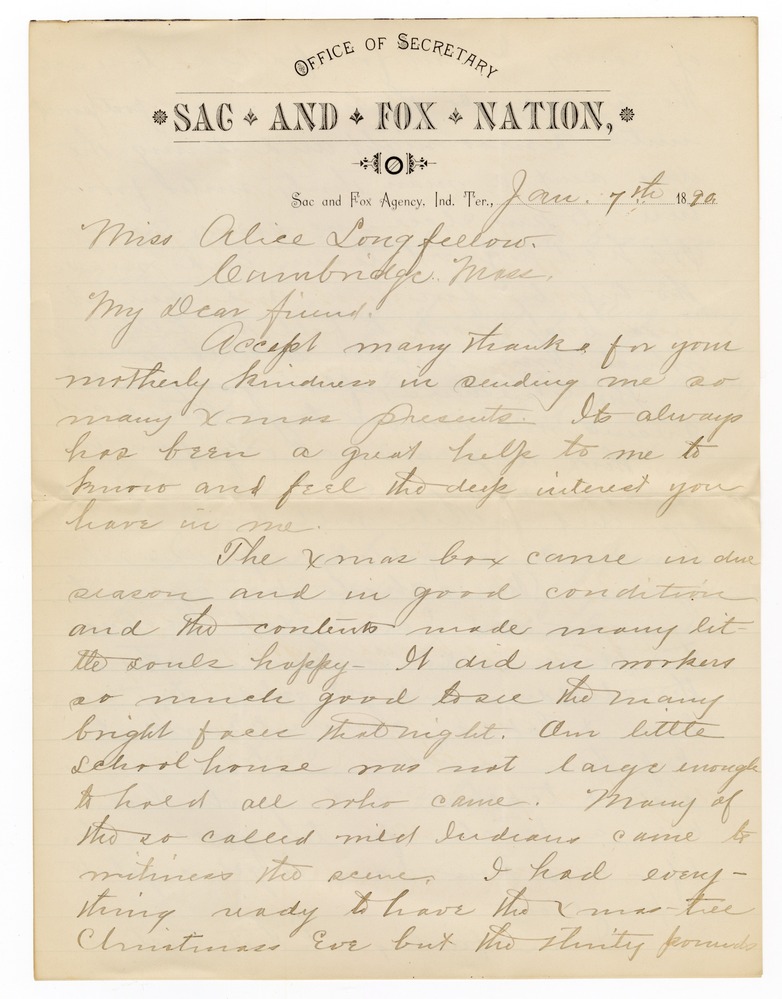 OFFICE OF SECRETARY
SAC AND FOX NATION,
Sac and Fox Agency, Ind. Ter., Jan. 7th 1890
Miss Alice Longfellow.
Cambridge. Mass.
My Dear friend.
Accept many thanks for your
motherly kindness in sending me so
many Xmas presents. It always
has been a great help to me to
know and feel the deep interest you
have in me.
The Xmas box came in due
season and in good condition
and the contents made many lit-
tle souls happy- It did us workers
so much good to see the many
bright faces that night. Our little
school house was not large enough
to hold all who came. Many of
the so called wild Indians came to
witness the scene. I had every-
thing ready to have the Xmas-tree
Christmass Eve but the thirty pounds